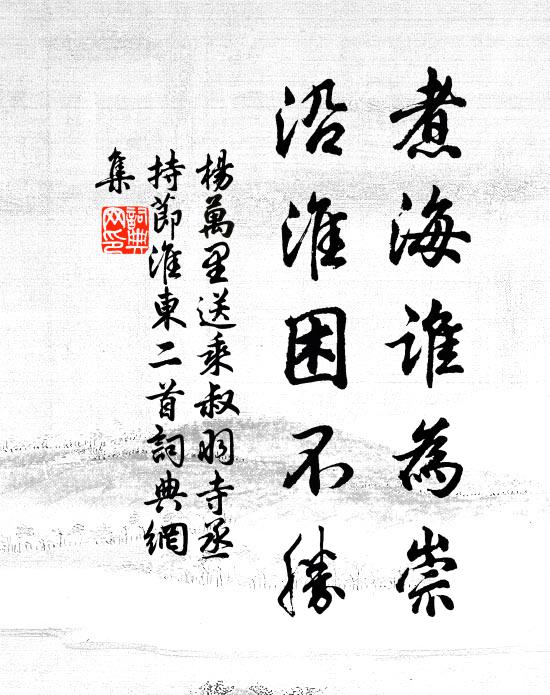 煮海誰為祟
沿淮困不勝
楊萬里送乘叔明寺丞
持節淮東二首詞典網
集
詞典
网印